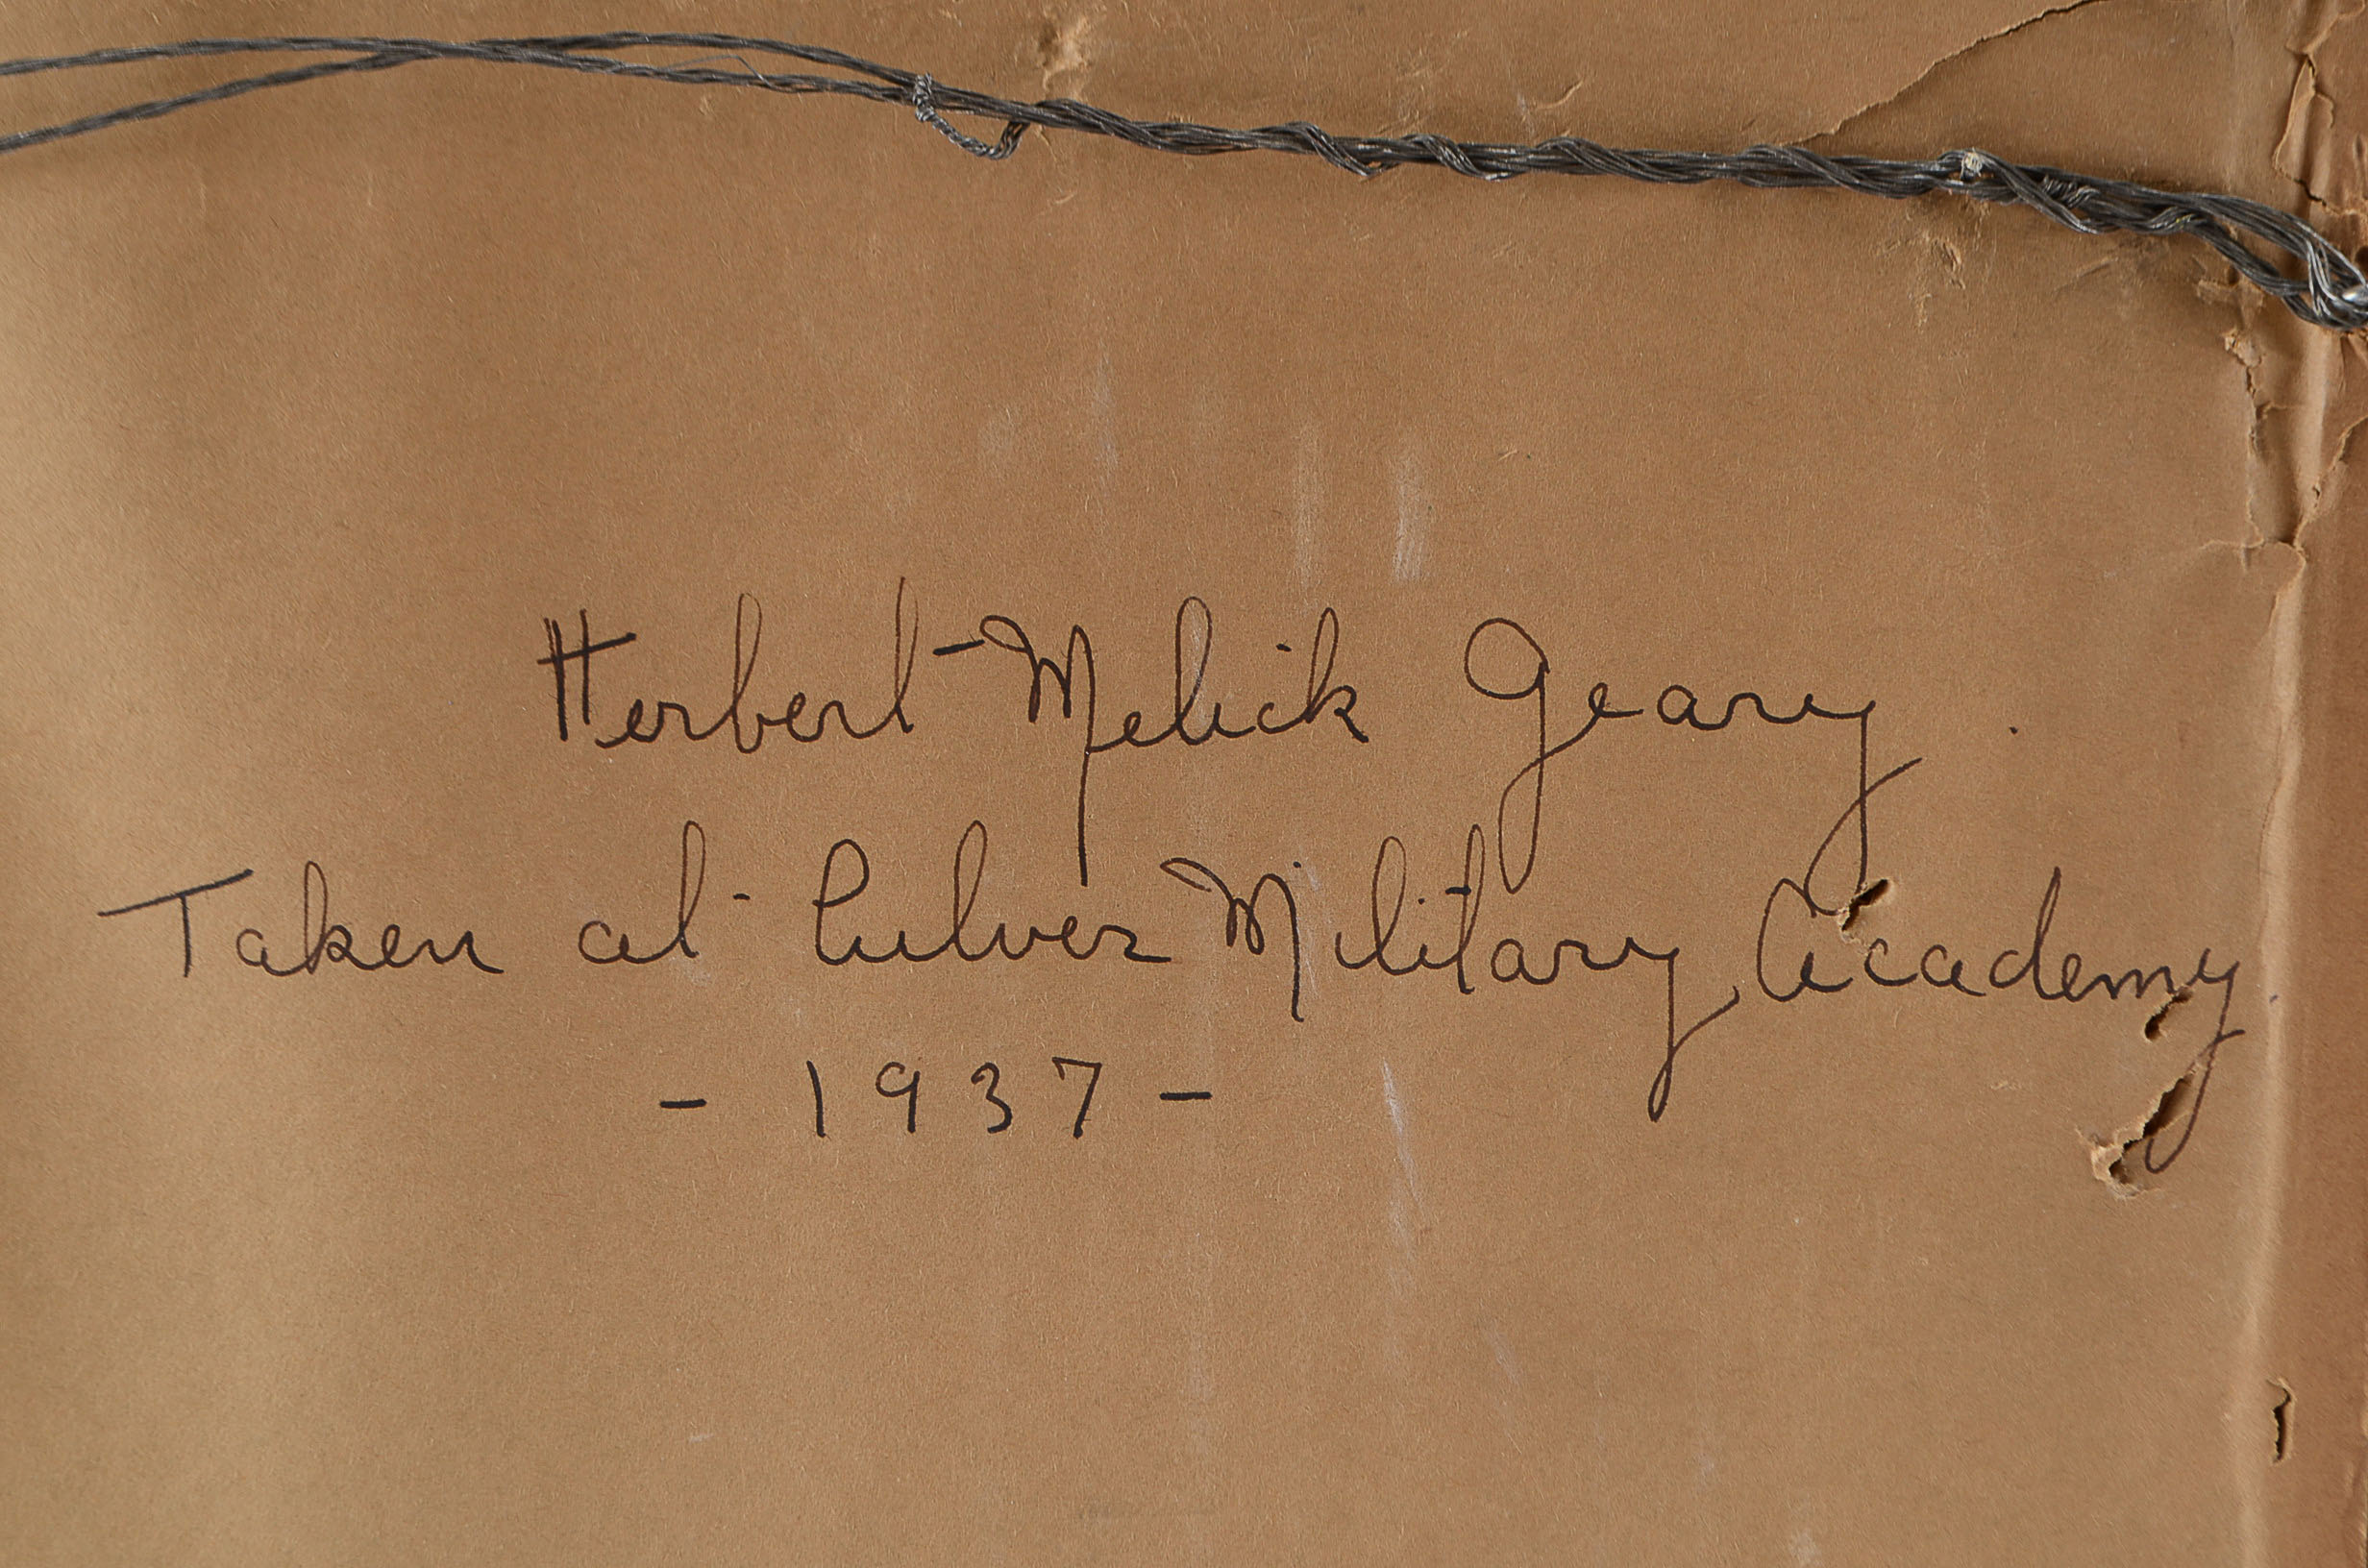 Herbert Melick Geary.
Taken at Culver Military Academy.
- 1937 -